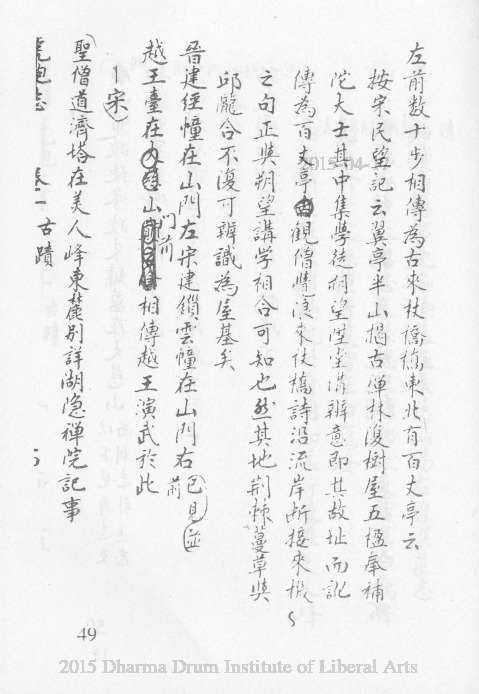 左前数十步相傳為古來杖僑橋東北有百丈亭云
按宋民望記云翼亭半山揭古僧林復樹屋五楹奉補
陀大士其中集學徒朔望陞堂講辨意即其故址而訛
傳為百丈亭觀僧
浪來仗橋詩沿流岸斷接來橛
之句正與朔望講学相合可知也然其地荆棘蔓草與
邱壠合不復可辨識為屋基矣
晉建經幢在山門左宋建鎖雲幢在山門右 已見並前
越王臺在山門前相傳越王演武於此
宋
聖僧道濟塔在美人峰東麓别詳湖隐禅院記事
虎跑志 古蹟
49
2015-04-
2015 Dharma Drum Institute of Liberal Arts